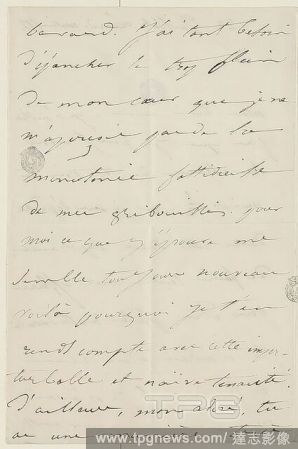 bavard. J'ai tant besoin
d'épancher le trop plein
de mon cœur que je ne
m'aperçois pas de la
monotonie fastidieuse
de mes gribouillis. pour
moi ce que j'éprouve me
semble toujours nouveau
voilà pourquoi je t'en
rends compte avec cette imper-
turbable et naïve tenacité.
D'ailleurs, mon adoré, tu
as une
TPG
www.tpgnews.com/達志影像